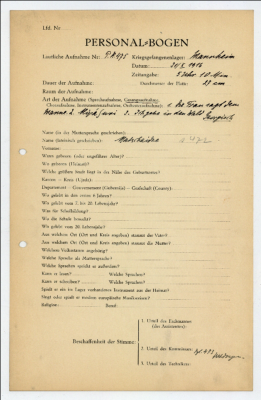 Lfd. Nr
PERSONAL-BOGEN
Lautliche Aufnahme Nr.: P.K 475 Kriegsgefangenenlager: Mannheim
Datum:
Zeitangabe: 5 Uhr 10 Min
Dauer der Aufnahme: Durchmesser der Platte: 27 cm
Raum der Aufnahme:
Art der Aufnahme (Sprechaufnahme, Gesangsaufnahme,
Choraufnahme, Instrumentenaufnahme, Orchesteraufnahme): Die Frau sagt dem
Manne. 2. 3. Ich gehe in den Wald
Name (in der Muttersprache geschrieben):
Name (lateinisch geschrieben):
Vorname:
Wann geboren (oder ungefähres Alter)?
Wo geboren (Heimat)?
Welche größere Stadt liegt in der Nähe des Geburtsortes?
Kanton — Kreis (Ujedz):
Departement — Gouvernement (Gubernija) — Grafschaft (County):
Wo gelebt in den ersten 6 Jahren?
Wo gelebt vom 7. bis 20. Lebensjahr?
Was für Schulbildung?
Wo die Schule besucht?
Wo gelebt vom 20. Lebensjahr?
Aus welchem Ort (Ort und Kreis angeben) stammt der Vater?
Aus welchem Ort (Ort und Kreis angeben) stammt die Mutter?
Welchem Volksstamm angehörig?
Welche Sprache als Muttersprache?
Welche Sprachen spricht er außerdem?
Kann er lesen? Welche Sprachen?
Kann er schreiben? Welche Sprachen?
Spielt er ein im Lager vorhandenes Instrument aus der Heimat?
Singt oder spielt er modern europäische Musikweisen?
Religion: Beruf:
Beschaffenheit der Stimme:
1. Urteil des Fachmannes
(des Assistenten):
2. Urteil des Kommissars:
3. Urteil des Vorsitzers: